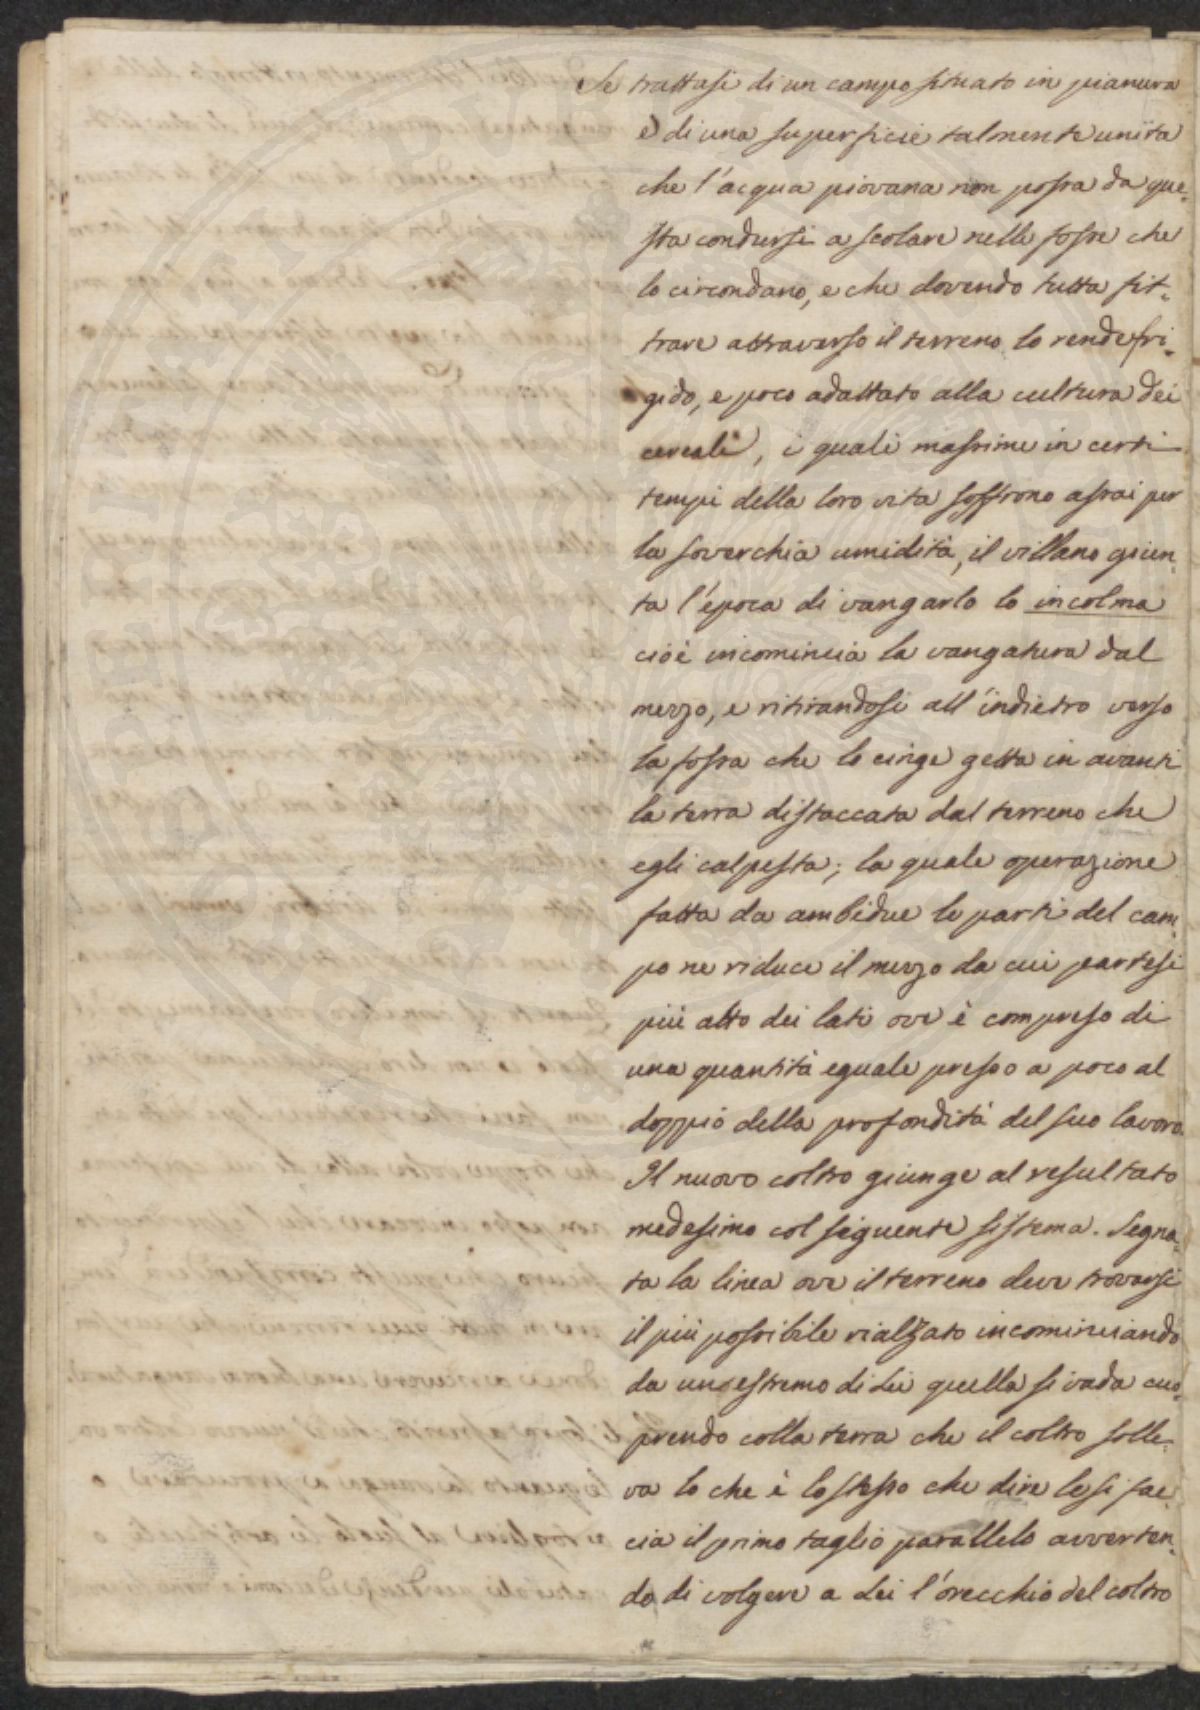 Se trattasi di un campo situato in pianura
e di una superficie talmente unita
che l'acqua piovana non possa da que-
sta condursi a scolare nelle fosse che
lo circondano, e che dovendo tutta fil-
trare attraverso il terreno lo rende fri-
gido, e poco adattato alla cultura dei
cereali, i quali massime in certi
tempi della loro vita soffrono assai per
la soverchia umidità, il villano giun-
ta l'époça di vangarlo lo incolma
cioè incomincia la vangatura dal
mezzo, e ritirandosi all'indietro verso
la fossa che lo cinge getta in avanti
la terra distaccata dal terreno che
egli calpesta; la quale operazione
fatta da ambidue le parti del cam-
po ne riduce il mezzo da cui partesi
più alto dei lati ove è compreso di
una quantità eguale presso a poco al
doppio della profondità del suo lavoro.
Il nuovo coltro giunge al resultato
medesimo col seguente sistema. Segna-
ta la linea ove il terreno deve trovarsi
il più possibile rialzato incominciando
da un estremo di Lei quella si vada cuo-
prendo colla terra che il coltro solle-
va lo che è lo stesso che dire le si fac-
cia il primo taglio parallelo avverten-
do di volgere a Lei l'orecchio del coltro